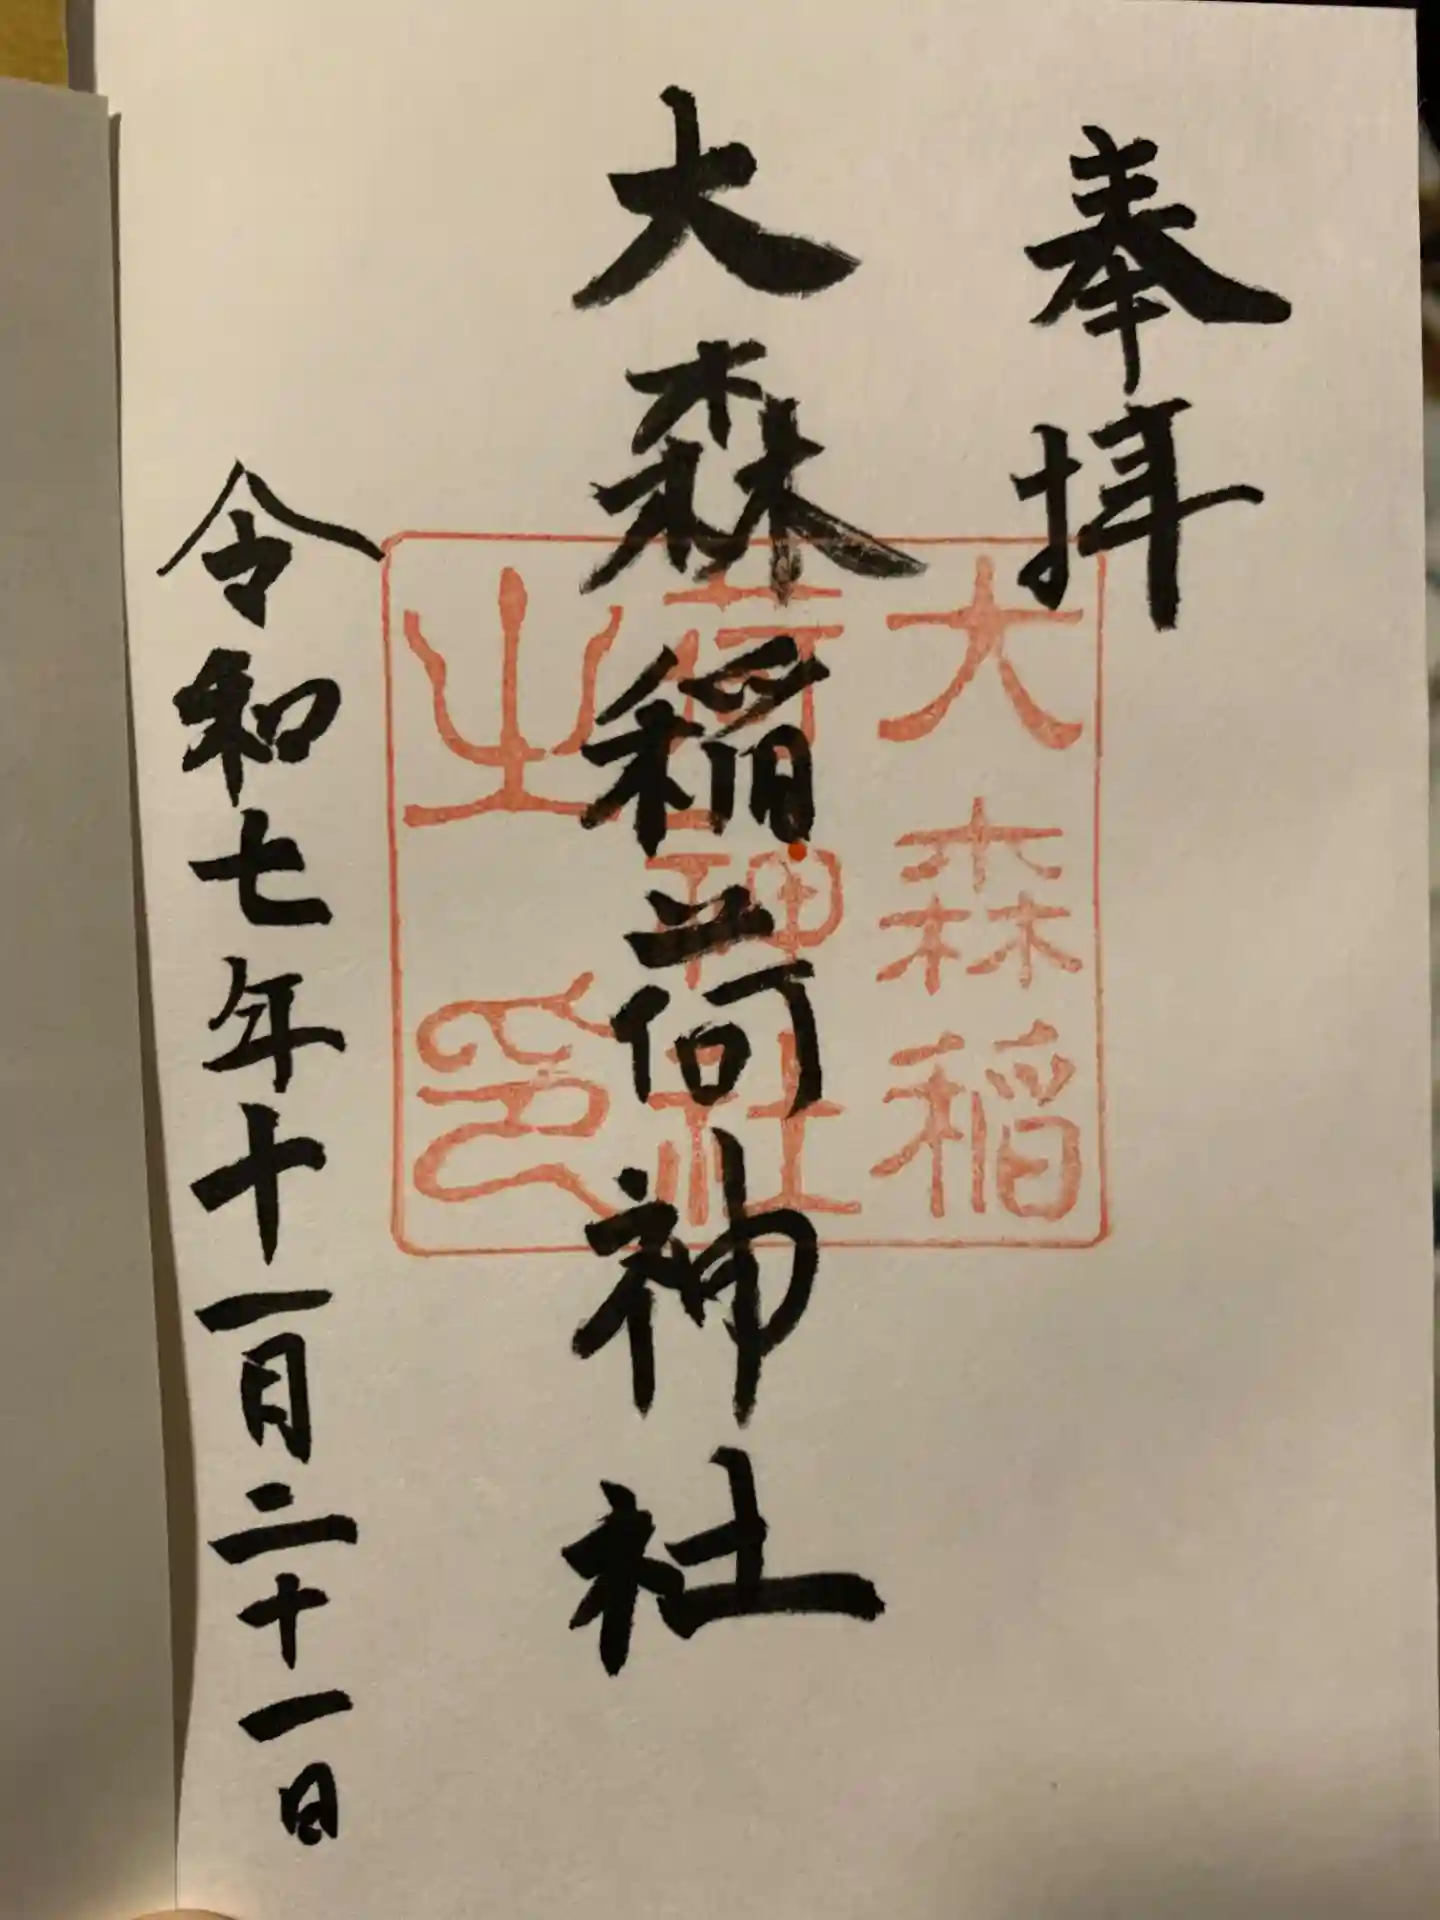 奉拝
大森稲荷神社
令和七年十一月二十一日
大森稲
荷神社
之印